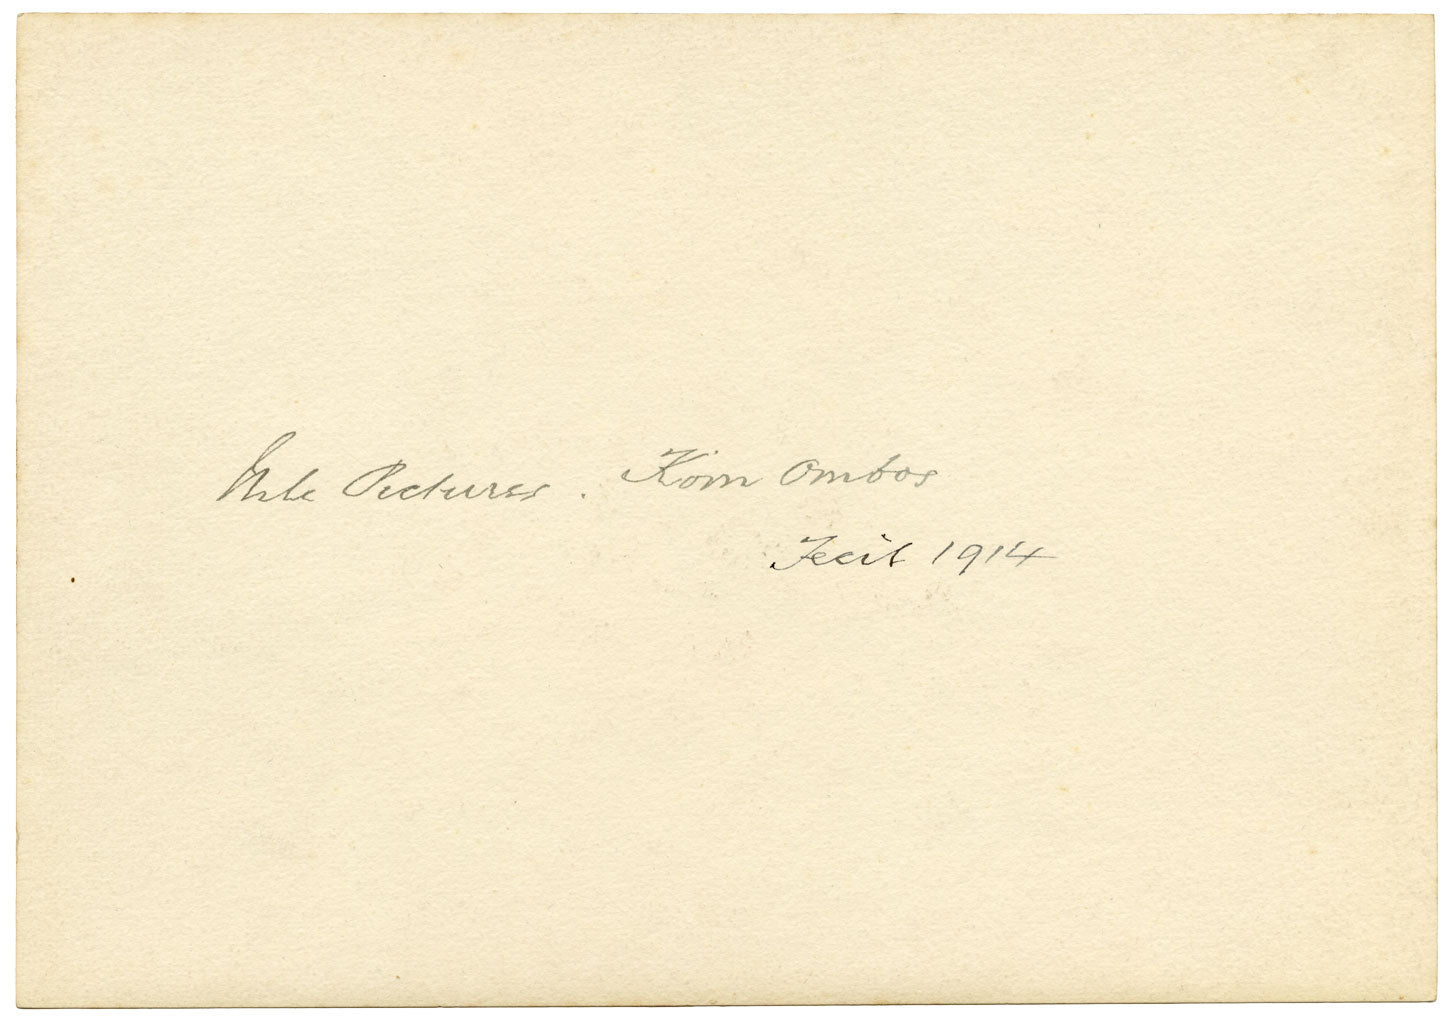 Nile Pictures. Kom Ombos
Fecit 1914